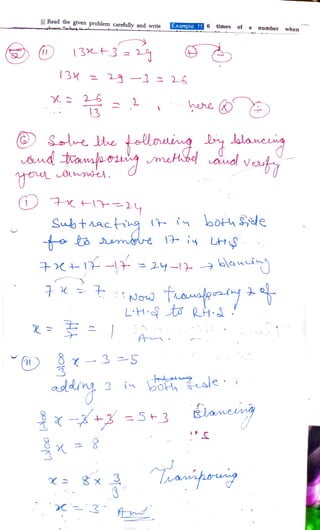 i) Read the given problem carefully and write Example 11 6 times of a number when
(ii) 13x + 3 = 29
13x = 29 - 3 = 26
x = 26/13 = 2, here
(6) Solve the following by blancing
and transposing method and verify
your answer.
(1) 7x + 17 = 24
Subtracting 17 in both side
to remove 17 in LHS
7x + 17 - 17 = 24 - 17 → blancing
7x = 7 Now transposing 7 of
L.H.S to RH.S.
x = 7/7 = 1 Ans.
(ii) 8/3 x - 3 = 5
adding 3 in both side.
8/3 x - 3 + 3 = 5 + 3 Blancing
8/3 x = 8
x = 8 x 3/8 Transposing
x = 3 Ans